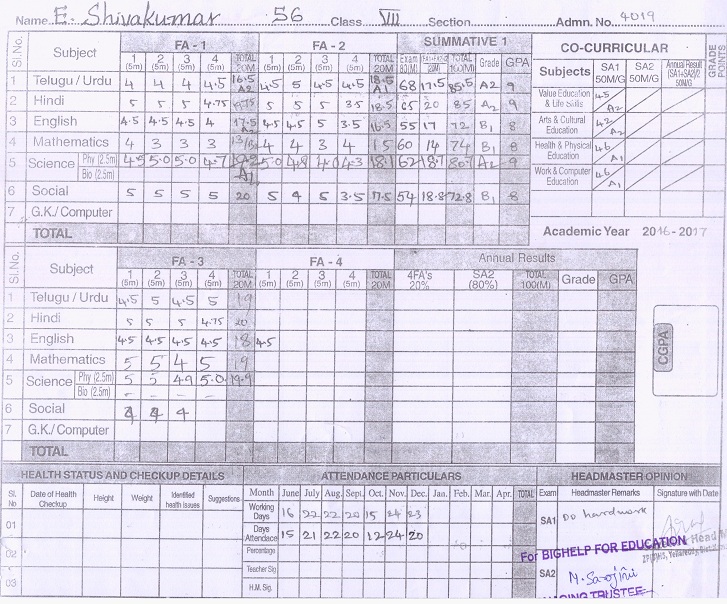 Name E. Shivakumar 56 Class VIII Section Admn. No. 4019
Sl.No. Subject FA - 1 FA - 2 SUMMATIVE 1
1 (5m) 2 (5m) 3 (5m) 4 (5m) TOTAL 20M 1 (5m) 2 (5m) 3 (5m) 4 (5m) TOTAL 20M Exam 80(M) TOTAL 100(M) Grade GPA
1 Telugu / Urdu 4 4 4 4.5 16.5 A2 4.5 5 4.5 4.5 18.5 A1 68 17.5 85.5 A2 9
2 Hindi 5 5 5 4.75 5 5 5 3.5 18.5 65 20 85 A2 9
3 English 4.5 4.5 4.5 4 17.5 A2 4.5 4.5 5 3.5 16.5 55 17 72 B1 8
4 Mathematics 4 3 3 3 13/B2 4 4 3 4 15 60 14 74 B1 8
5 Science Phy (2.5m) 4.5 5.0 5.0 4.7 5.0 4.8 4.0 4.3 18.1 62 18.7 80.7 A2 9
Bio (2.5m) A1
6 Social 5 5 5 5 20 5 4 5 3.5 17.5 54 18.8 72.8 B1 8
7 G.K./ Computer
TOTAL
CO-CURRICULAR
GRADE POINTS
Subjects SA1 50M/G SA2 50M/G Annual Result (SA1+SA2)/2 50M/G
Value Education & Life Skills 45 A2
Arts & Cultural Education 42 A2
Health & Physical Education 46 A1
Work & Computer Education 46 A1
Academic Year 2016 - 2017
Sl.No. Subject FA - 3 FA - 4 Annual Results
1 (5m) 2 (5m) 3 (5m) 4 (5m) TOTAL 20M 1 (5m) 2 (5m) 3 (5m) 4 (5m) TOTAL 20M 4FA's 20% SA2 (80%) TOTAL 100(M) Grade GPA
1 Telugu / Urdu 4.5 5 4.5 5 19
2 Hindi 5 5 5 4.75 20
3 English 4.5 4.5 4.5 4.5 18 4.5
4 Mathematics 5 5 4 5 19
5 Science Phy (2.5m) 5 5 4.9 5.0 19.9
Bio (2.5m) - - - -
6 Social 4 4 4
7 G.K./ Computer
TOTAL
CGPA
HEALTH STATUS AND CHECKUP DETAILS
Sl. No Date of Health Checkup Height Weight Identified health issues Suggestions
01
02
03
ATTENDANCE PARTICULARS
Month June July Aug. Sept. Oct. Nov. Dec. Jan. Feb. Mar. Apr. TOTAL
Working Days 16 22 22 20 15 24 23
Days Attendace 15 21 22 20 12 24 20
Percentage
Teacher Sig.
H.M. Sig.
HEADMASTER OPINION
Exam Headmaster Remarks Signature with Date
SA1 Do hardwork
Head M
For BIGHELP FOR EDUCATION
SA2 M. Sarojini
MANAGING TRUSTEE